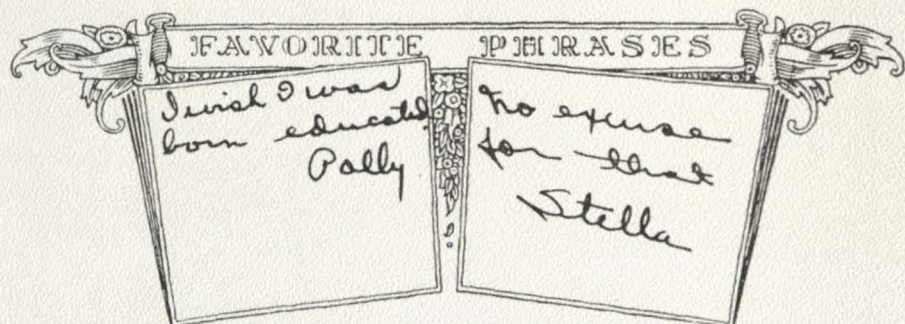 FAVORITE PHRASES
I wish I was
born educated
Polly
No excuse
for that
Stella